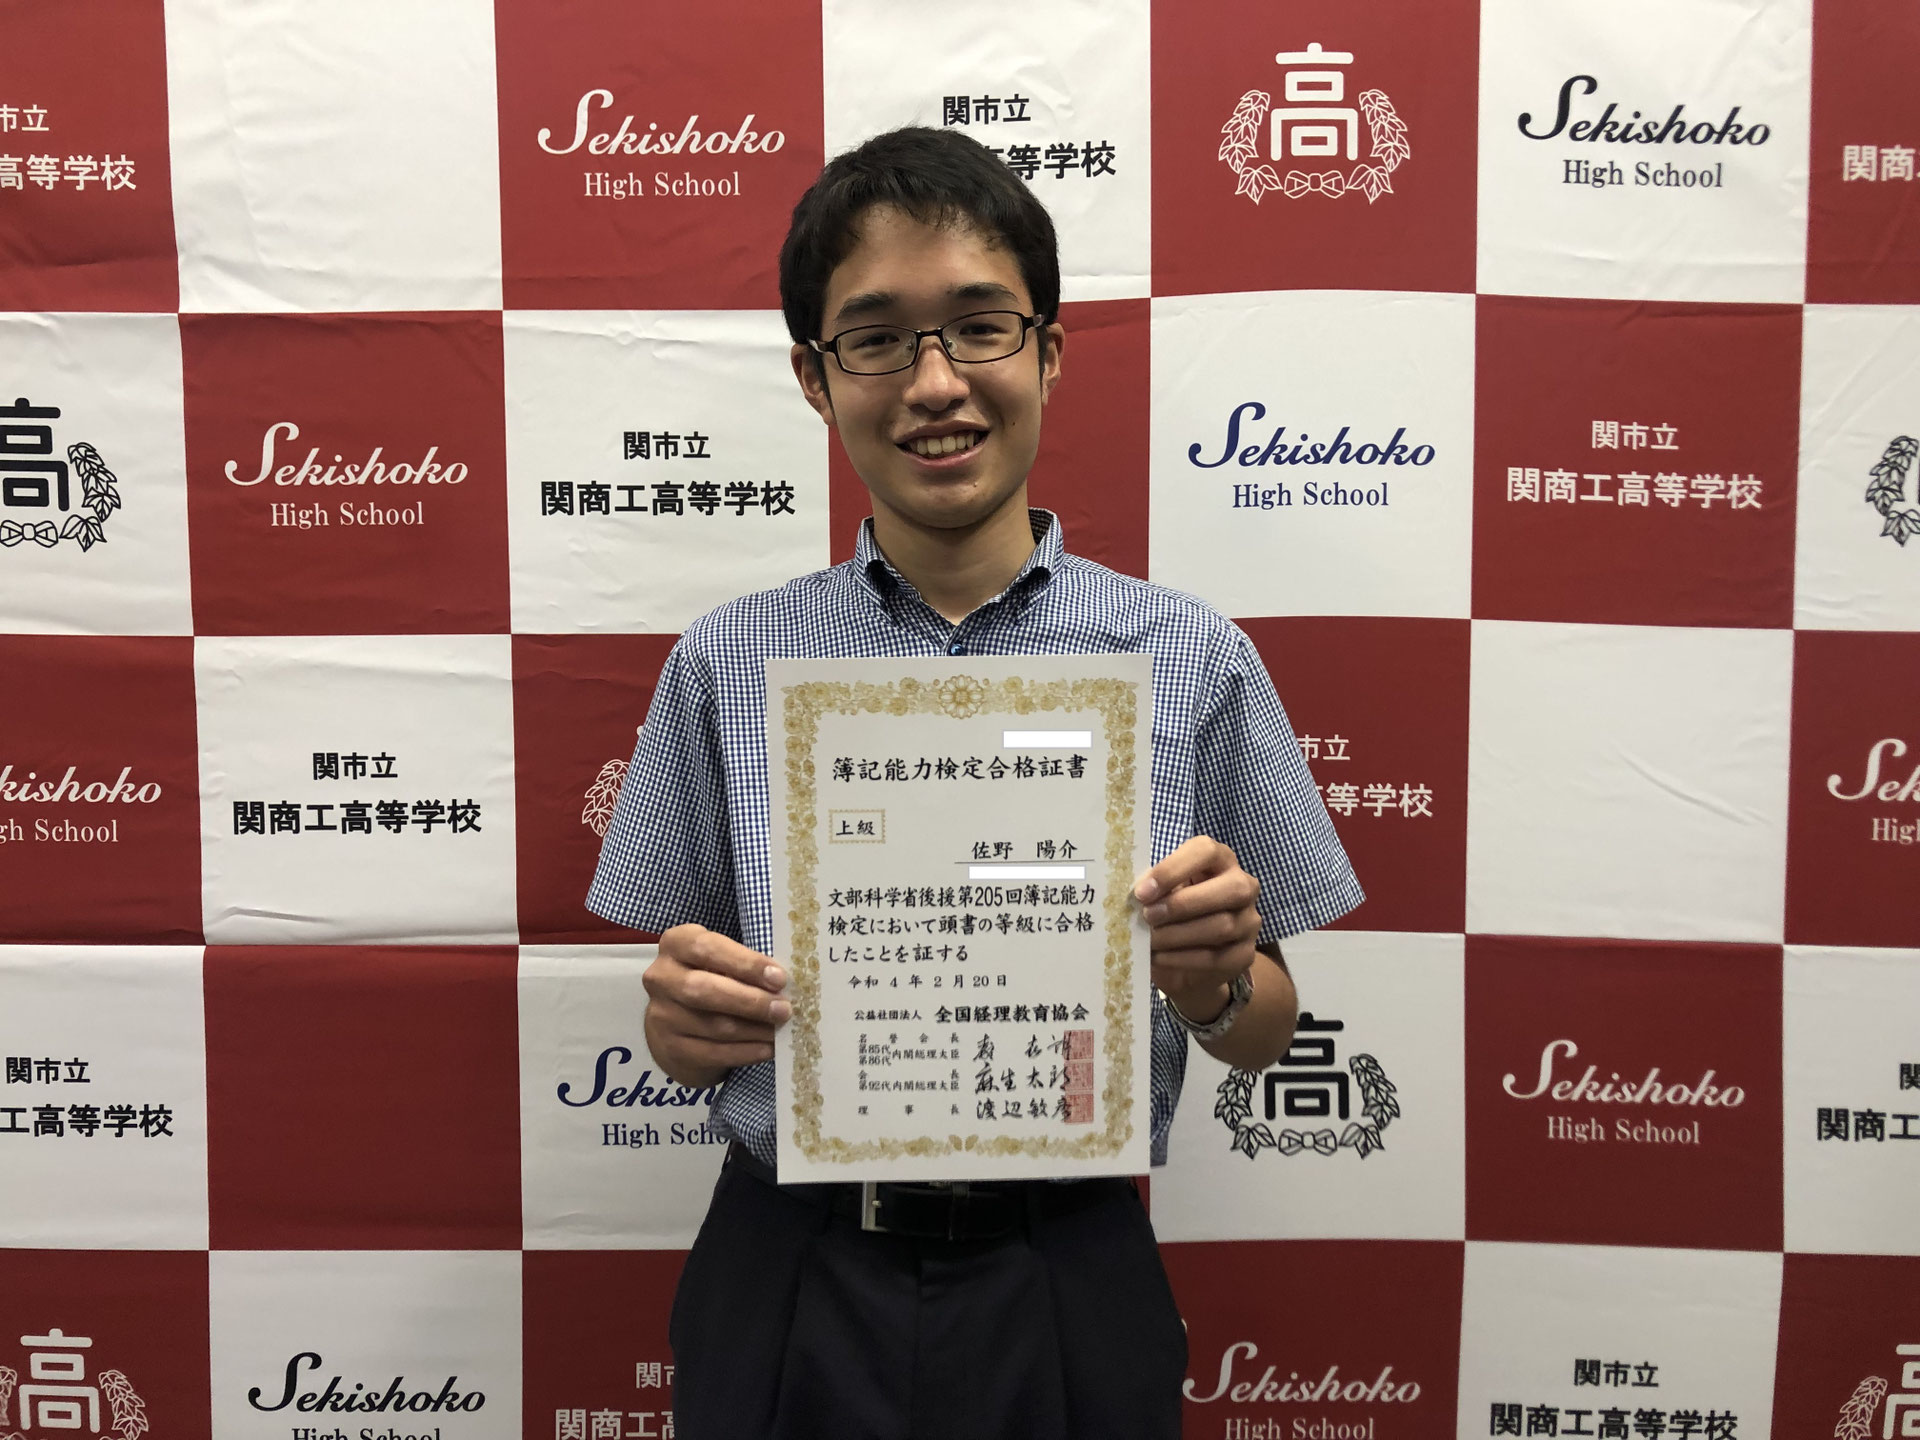 市立
高等学校
Sekishoko
High School
関市立
高等学校
高
Sekishoko
High School
関商
高
Sekishoko
High School
関市立
関商工高等学校
Sekishoko
High School
関市立
関商工高等学校
kishoko
gh School
関市立
関商工高等学校
市立
高等学校
Sek
High
簿記能力検定合格証書
上級
佐野 陽介
文部科学省後援第205回簿記能力
検定において頭書の等級に合格
したことを証する
令和 4 年 2 月 20 日
公益社団法人 全国経理教育協会
名誉会長
第85代
第86代内閣総理大臣 森 喜朗
会長
第92代内閣総理大臣 麻生太郎
理事長 渡辺敏彦
関市立
工高等学校
Sekish
High Scho
高
Sekishoko
High School
関
関商工
高
Sekishoko
High School
関市
関商工高
Sekishoko
High School
関市立
関商工高等学校
高